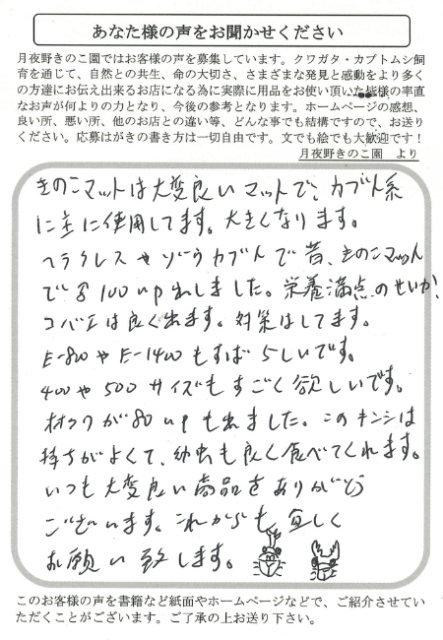 あなた様の声をお聞かせください
月夜野きのこ園ではお客様の声を募集しています。クワガタ・カブトムシ飼
育を通じて、自然との共生、命の大切さ、さまざまな発見と感動をより多く
の方達にお伝え出来るお店になる為に実際に用品をお使い頂いた皆様の率直
なお声が何よりの力となり、今後の参考となります。ホームページの感想、
良い所、悪い所、他のお店との違い等、どんな事でも結構ですので、お送り
ください。応募はがきの書き方は一切自由です。文でも絵でも大歓迎です！
月夜野きのこ園　より
きのこマットは大変良いマットで、カブト系
に主に使用してます。大きくなります。
ヘラクレスやゾウカブトで昔、きのこマット
で♂100up出しました。栄養満点のせいか！
コバエは良く出ます。対策はしてます。
E-800やE-1400もすばらしいです。
400や500サイズもすごく欲しいです。
オオクワが80upも出ました。このキンシは
持ちがよくて、幼虫も良く食べてくれます。
いつも大変良い商品をありがとう
ございます。これからも宜しく
お願い致します。
このお客様の声を書籍など紙面やホームページなどで、ご紹介させてい
ただくことがございます。ご了承の上お送り下さい。